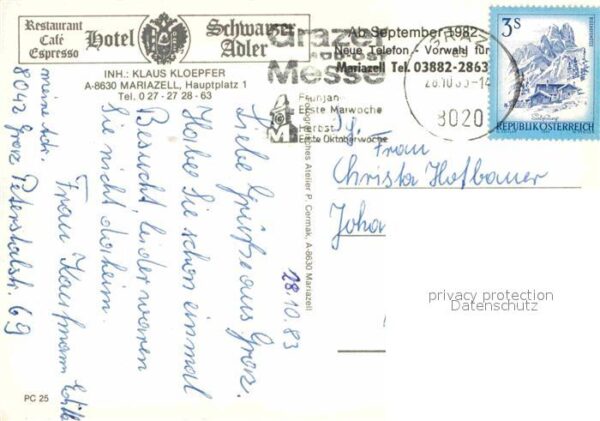 Restaurant
Café
Espresso
Hotel
Schwarzer
Adler
INH.: KLAUS KLOEPFER
A-8630 MARIAZELL, Hauptplatz 1
Tel. 0 27 - 27 28 - 63
Grazer
Messe
Frühjahr
Erste Maiwoche
Herbst
Erste Oktoberwoche
Ab September 1982
Neue Telefon - Vorwahl für
Mariazell Tel. 03882-2863
28.10.83-14
8020
3S
REPUBLIK ÖSTERREICH
Frau
Christa Hofbauer
Joha
privacy protection
Datenschutz
Photographisches Atelier P. Cermak, A-8630 Mariazell
28.10.83
Liebe Grüße aus Graz.
Habe Sie schon einmal
Besucht, leider waren
Sie nicht daheim.
Frau Kaufmann
8042 Graz Petersstalstr. 69
PC 25